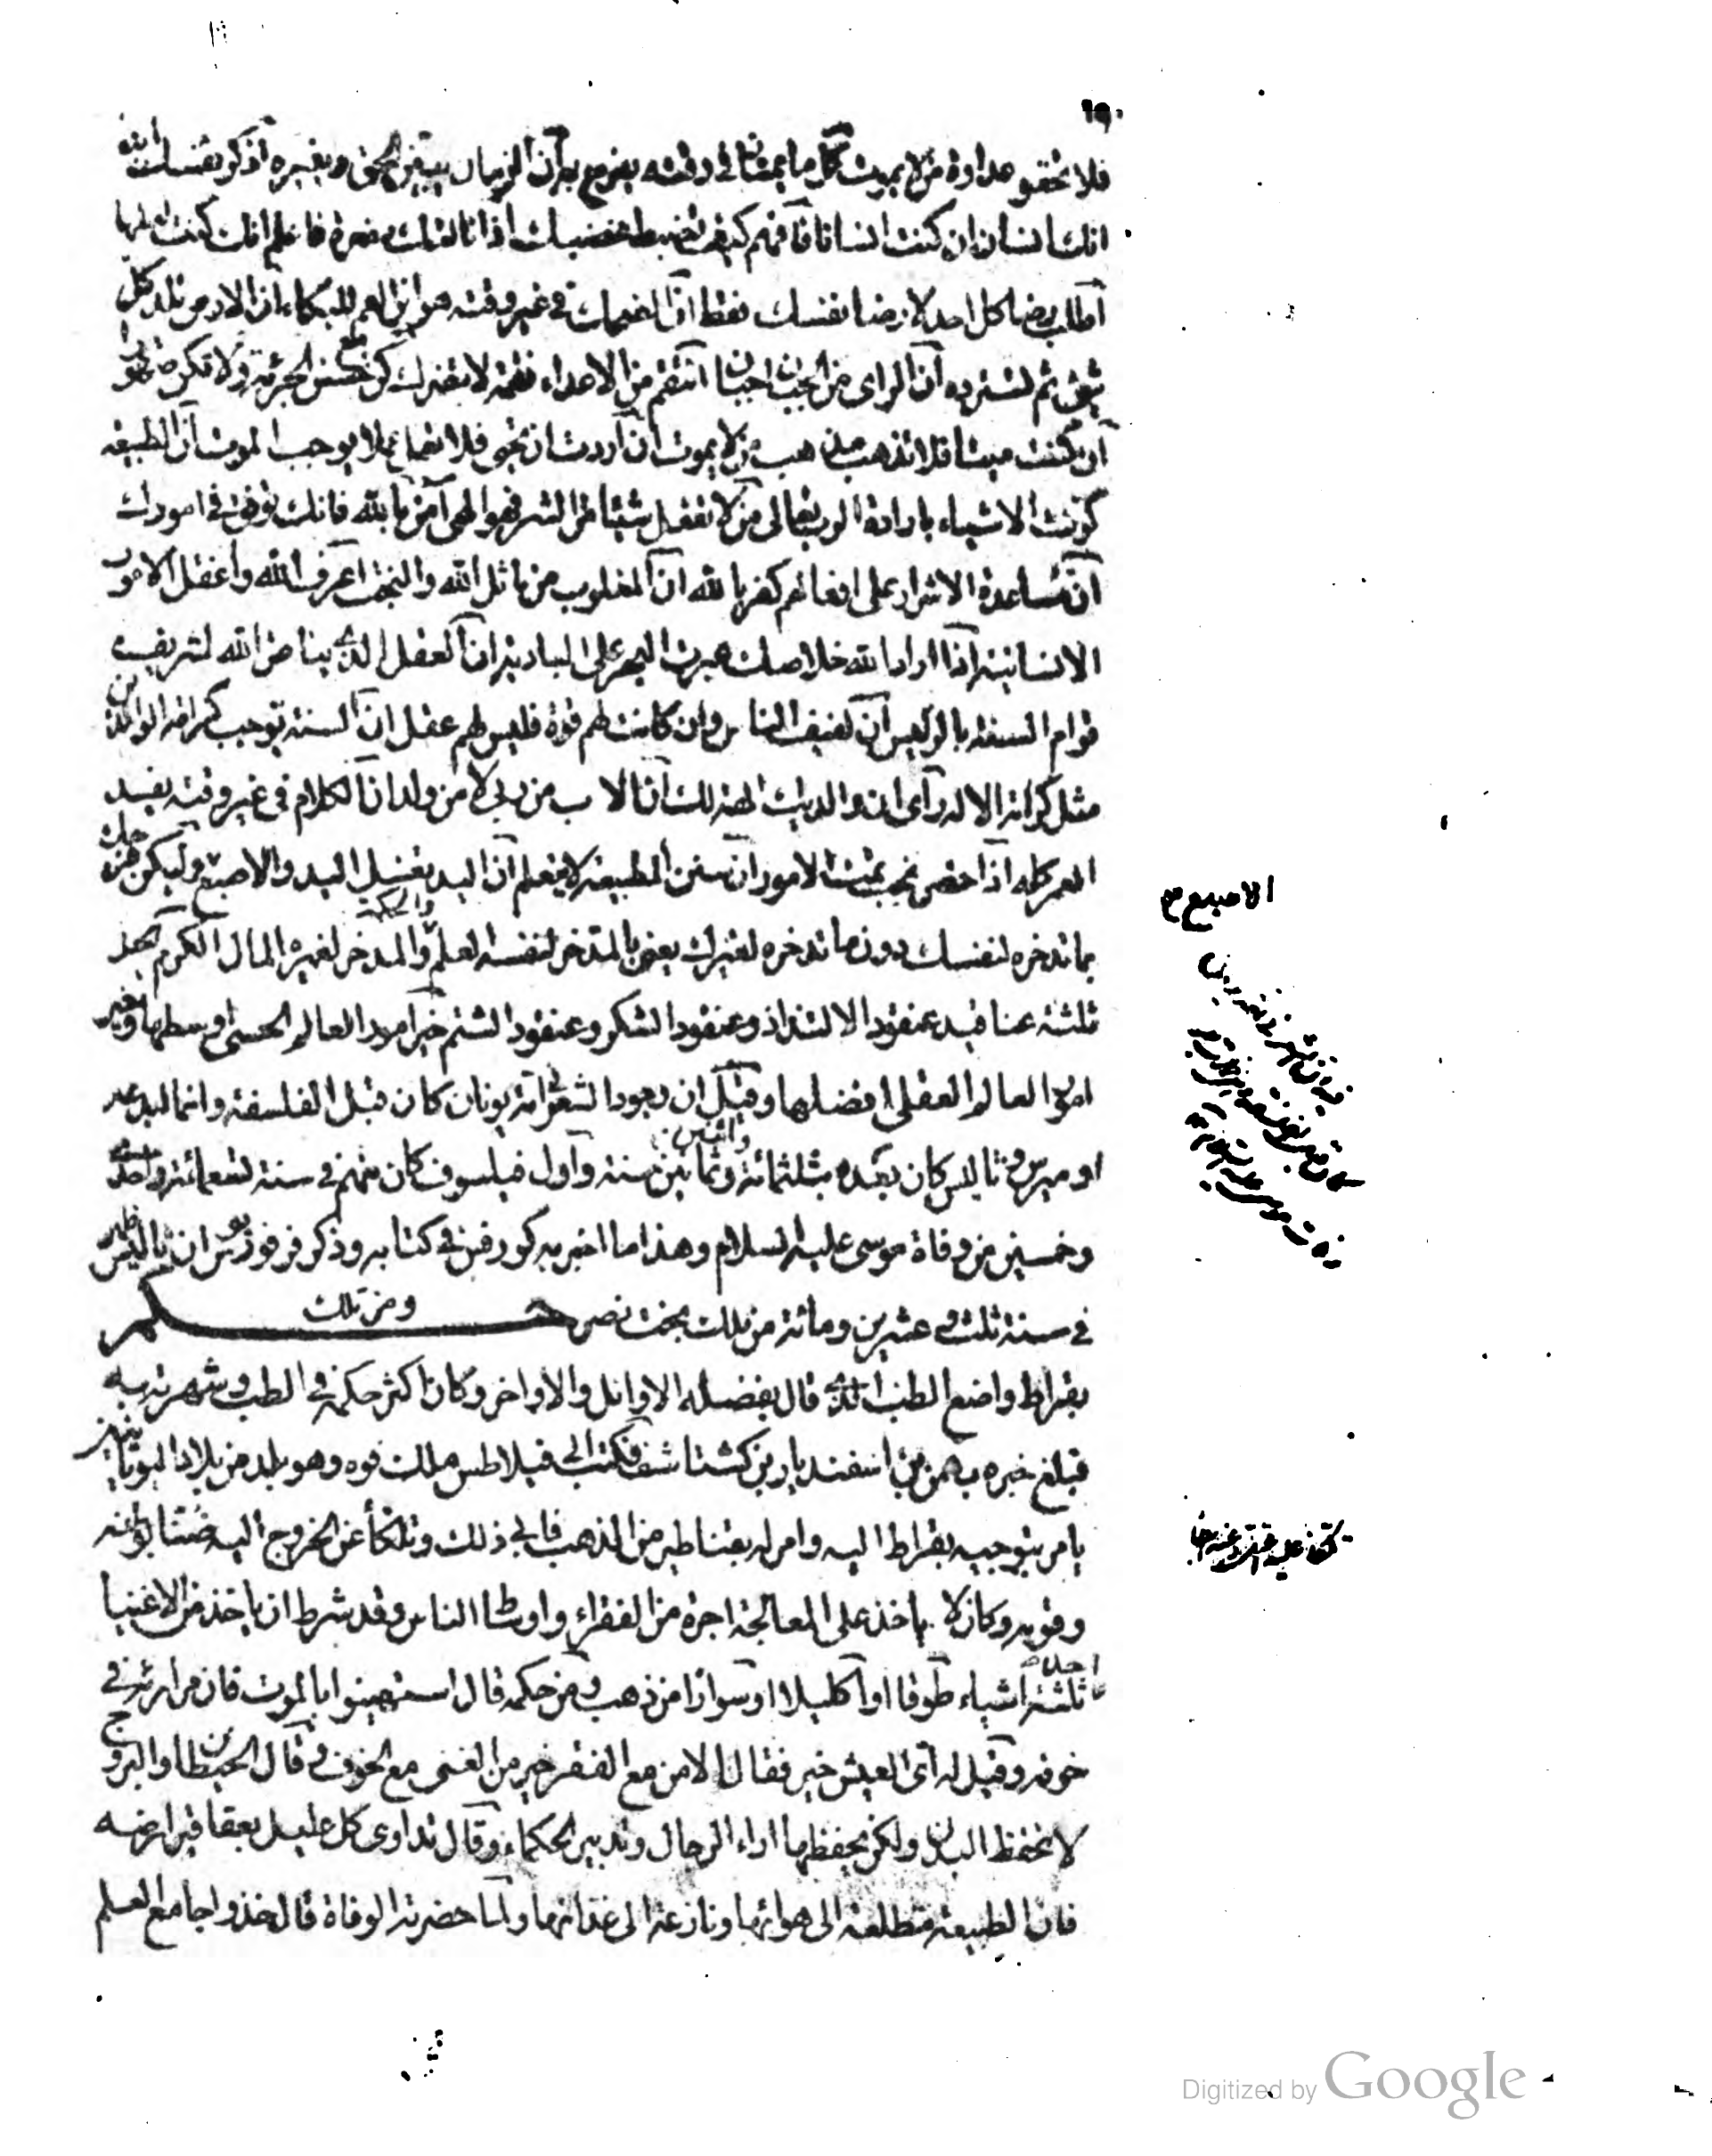 ١٩٠
فلا تحقد عداوة من لا يموت كل ما يختار في وقته يفرح به ان الزمان يبين الحق وينيره اذكر نفسك ابدا
انك انسان ان كنت انسانا فافهم كيف تضبط غضبك اذا نالتك مضرة فاعلم انك كنت اهلها
اطلب رضا كل احد لا رضا نفسك فقط ان الضحك في غير وقته هو ابن عم البكاء ان الارض تلد كل
شيء ثم تسترده ان الراي من الجبان جبان انتقم من الاعداء نقمة لا تضرك كن حسن الجرأة ولا تكن متهورا
ان كنت ميتا فلا تذهب مذهب من لا يموت ان اردت ان تحيى فلا تعمل عملا يوجب الموت ان الطبيعة
كونت الاشياء بارادة الرب تعالى من لا يفعل شيئا من الشر فهو الهي آمن بالله فانك توفق في امورك
ان مساعدة الاشرار على افعالهم كفر بالله ان المغلوب من قاتل الله والبخت اعرف الله واعقل الامور
الانسانية اذا اراد الله خلاصك عبرت البحر على البادية ان العقل الذي يناطق الله لشريف
قوام السنة بالرئيس ان لفيف الناس وان كانت لهم قوة فليس لهم عقل ان السنة توجب كرامة الوالدين
مثل كرامة الاله رأي ان والديك الهة لك ان الاب من ربى لا من ولد ان الكلام في غير وقته يفسد
العمر كله اذا حضر البخت تمت الامور ان سنن الطبيعة لا تتعلم ان اليد تغسل اليد والاصبع وليكن فرحك
بما تدخره لنفسك دون ما تدخره لغيرك يعني بالمدخر لنفسه العلم والحكمة والمدخر لغيره المال الكرم يحمل
ثلثة عناقيد عنقود الالتذاذ وعنقود السكر وعنقود الشتم خير امور العالم الحسي اوسطها وخير
امور العالم العقلي افضلها وقيل ان وجود الشعر في امة يونان كان قبل الفلسفة وانما ابدعه
اوميرس وثاليس كان بعده بثلثمائة واثنين وثمانين سنة واول فيلسوف كان منهم في سنة تسعمائة واحدى
وخمسين من وفاة موسى عليه السلام وهذا ما اخبر به كورفس في كتابه وذكر فرفوريوس ان ثاليس ظهر
في سنة ثلث وعشرين ومائة من ملك بخت نصر ومن تلك حكم
بقراط واضع الطب الذي قال بفضله الاوائل والاواخر وكان اكثر حكمه في الطب وشهرته به
فبلغ خبره بهمن بن اسفنديار بن كشتاشف فكتب الى فيلاطس ملك قوه وهو بلد من بلاد اليونانيين
يامر بتوجيه بقراط اليه وامر له بقناطير من الذهب فابى ذلك وتلكأ عن الخروج اليه ضنا بوطنه
وقومه وكان لا ياخذ على المعالجة اجرة من الفقراء واوساط الناس وقد شرط ان ياخذ من الاغنيا
احد ثلثة اشياء طوقا او اكليلا او سوارا من ذهب فمن حكمه قال استهينوا بالموت فان مرارته في
خوفه وقيل له اي العيش خير فقال الامن مع الفقر خير من الغنى مع الخوف وقال الحيطان والبروج
لا تحفظ المدن ولكن يحفظها اراء الرجال وتدبير الحكماء وقال تداوى كل عليل بعقاقير ارضه
فان الطبيعة متطلعة الى هوائها ونازعة الى غذائها ولما حضرته الوفاة قال خذوا جامع العلم
الاصبع
Digitized by Google